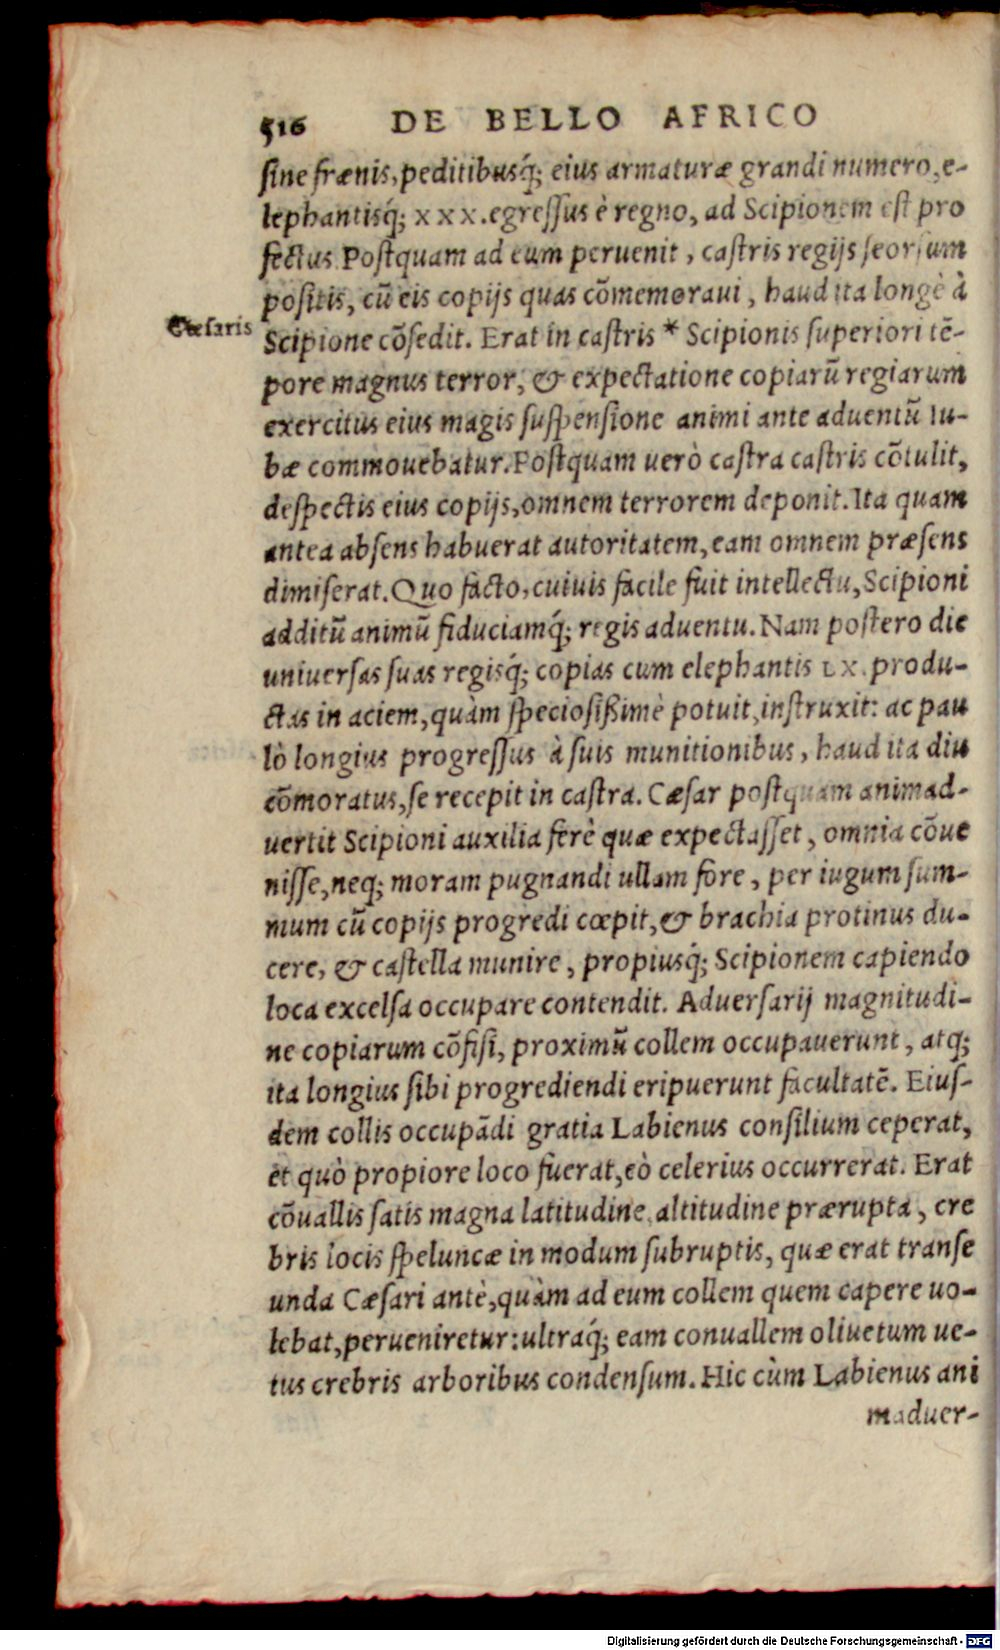 516 DE BELLO AFRICO
ſine frænis, peditibusq́; eius armaturæ grandi numero, e-
lephantisq́; xxx. egreſſus è regno, ad Scipionem eſt pro
fectus. Poſtquam ad eum peruenit, caſtris regijs ſeorſum
poſitis, cū eis copijs quas cōmemoraui, haud ita longè à
Cæſaris
Scipione cōſedit. Erat in caſtris * Scipionis ſuperiori tē-
pore magnus terror, & expectatione copiarū regiarum
exercitus eius magis ſuſpenſione animi ante aduentū Iu-
bæ commouebatur. Poſtquam uerò caſtra caſtris cōtulit,
deſpectis eius copijs, omnem terrorem deponit. Ita quam
antea abſens habuerat autoritatem, eam omnem præſens
dimiſerat. Quo facto, cuiuis facile fuit intellectu, Scipioni
additū animū fiduciamq́; regis aduentu. Nam poſtero die
uniuerſas ſuas regisq́; copias cum elephantis LX. produ-
ctas in aciem, quàm ſpecioſißimè potuit, inſtruxit: ac pau
lò longius progreſſus à ſuis munitionibus, haud ita diu
cōmoratus, ſe recepit in caſtra. Cæſar poſtquam animad-
uertit Scipioni auxilia ferè quæ expectaſſet, omnia cōue
niſſe, neq; moram pugnandi ullam fore, per iugum ſum-
mum cū copijs progredi cœpit, & brachia protinus du-
cere, & caſtella munire, propiusq́; Scipionem capiendo
loca excelſa occupare contendit. Aduerſarij magnitudi-
ne copiarum cōfiſi, proximū collem occupauerunt, atq;
ita longius ſibi progrediendi eripuerunt facultatē. Eiuſ-
dem collis occupādi gratia Labienus conſilium ceperat,
et quò propiore loco fuerat, eò celerius occurrerat. Erat
cōuallis ſatis magna latitudine, altitudine prærupta, cre
bris locis ſpeluncæ in modum ſubruptis, quæ erat tranſe
unda Cæſari antè, quàm ad eum collem quem capere uo-
lebat, perueniretur: ultraq́; eam conuallem oliuetum ue-
tus crebris arboribus condenſum. Hic cùm Labienus ani
maduer-
Digitalisierung gefördert durch die Deutsche Forschungsgemeinschaft - DFG